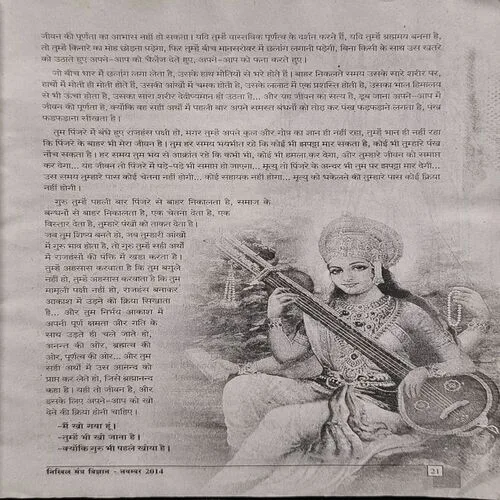 जीवन की पूर्णता का आभास नहीं हो सकता। यदि तुम्हें वास्तविक पूर्णत्व के दर्शन करने हैं, यदि तुम्हें ब्रह्ममय बनना है,
तो तुम्हें किनारे का मोह छोड़ना पड़ेगा, फिर तुम्हें बीच मानसरोवर में छलांग लगानी पड़ेगी, बिना किसी के साथ उस खतरे
को उठाते हुए अपने-आप को चैलेंज देते हुए, अपने-आप को फना करते हुए।
जो बीच भार में छलांग लगा लेता है, उसके हाथ मोतियों से भरे होते हैं। बाहर निकलते समय उसके सारे शरीर पर,
हाथों में मोती ही मोती होते हैं, उसकी आंखों में चमक होती है, उसके ललाट में एक प्रशस्ति होती है, उसका भाल हिमालय
से भी ऊंचा होता है, उसका सारा शरीर देदीप्यमान हो उठता है... और यह जीवन का सत्य है, डूब जाना अपने-आप में
जीवन की पूर्णता है, क्योंकि वह सही अर्थों में पहली बार अपने समस्त बंधनों को तोड़ कर पंख फड़फड़ाने लगता है, परन्तु
फड़फड़ाना सीखता है।
तुम पिंजरे में बंधे हुए राजहंस पक्षी हो, मगर तुम्हें अपने कुल और गोत्र का ज्ञान ही नहीं रहा, तुम्हें भान ही नहीं रहा
कि पिंजरे के बाहर भी मेरा जीवन है। तुम हर समय भयभीत रहे कि कोई भी झपट्टा मार सकता है, कोई भी तुम्हारे पंख
नोंच सकता है। हर समय तुम भय से आक्रांत रहे कि कभी भी, कोई भी हमला कर देगा, और तुम्हारे जीवन को समाप्त
कर देगा... यह जीवन तो पिंजरे में पड़े-पड़े भी समाप्त हो जाएगा... मृत्यु तो पिंजरे के अन्दर भी तुम पर झपट्टा मार देगी...
उस समय तुम्हारे पास कोई चेतना नहीं होगी... कोई सहायक नहीं होगा... मृत्यु को धकेलने की तुम्हारे पास कोई क्रिया
नहीं होगी।
गुरु तुम्हें पहली बार पिंजरे से बाहर निकालता है, समाज के
बन्धनों से बाहर निकालता है, एक चेतना देता है, एक
विस्तार देता है, तुम्हारे पंखों को ताकत देता है।
जब तुम शिष्य बनते हो, जब तुम्हारी आंखों
में गुरु भाव होता है, तो गुरु तुम्हें सही अर्थों
में राजहंसों की पंक्ति में खड़ा करता है।
तुम्हें अहसास करवाता है कि तुम बगुले
नहीं हो, तुम्हें अहसास करवाता है कि तुम
मामूली पक्षी नहीं हो, राजहंस बनाकर
आकाश में उड़ने की क्रिया सिखाता
है... और तुम निर्भय आकाश में
अपनी पूर्ण क्षमता और गति के
साथ उड़ते ही चले जाते हो,
अनन्त की ओर, ब्रह्मत्व की
ओर, पूर्णत्व की ओर... और तुम
सही अर्थों में उस आनन्द को
प्राप्त कर लेते हो, जिसे ब्रह्मानन्द
कहा है। यही तो जीवन है, और
इसके लिए अपने-आप को खो
देने की क्रिया होनी चाहिए।
-मैं खो गया हूं।
-तुम्हें भी खो जाना है।
-क्योंकि गुरु भी पहले खोया है।
निखिल मंत्र विज्ञान - नवम्बर 2014
21